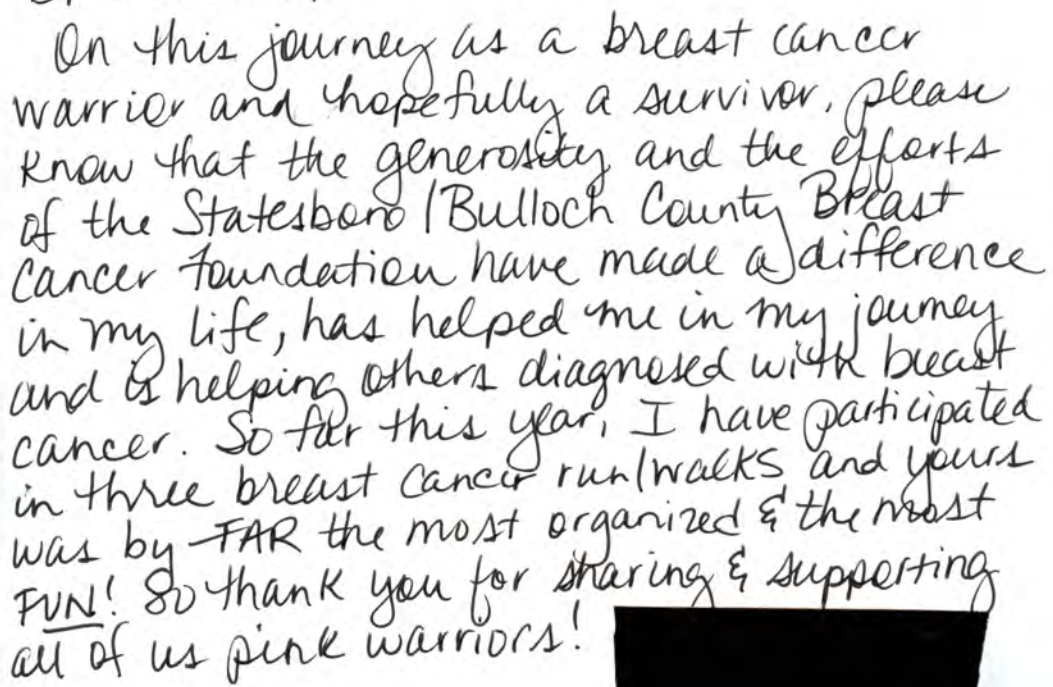 On this journey as a breast cancer
warrior and hopefully a survivor, please
know that the generosity and the efforts
of the Statesboro/Bulloch County Breast
Cancer Foundation have made a difference
in my life, has helped me in my journey
and is helping others diagnosed with breast
cancer. So far this year, I have participated
in three breast cancer run/walks and yours
was by FAR the most organized & the most
FUN! So thank you for sharing & supporting
all of us pink warriors!